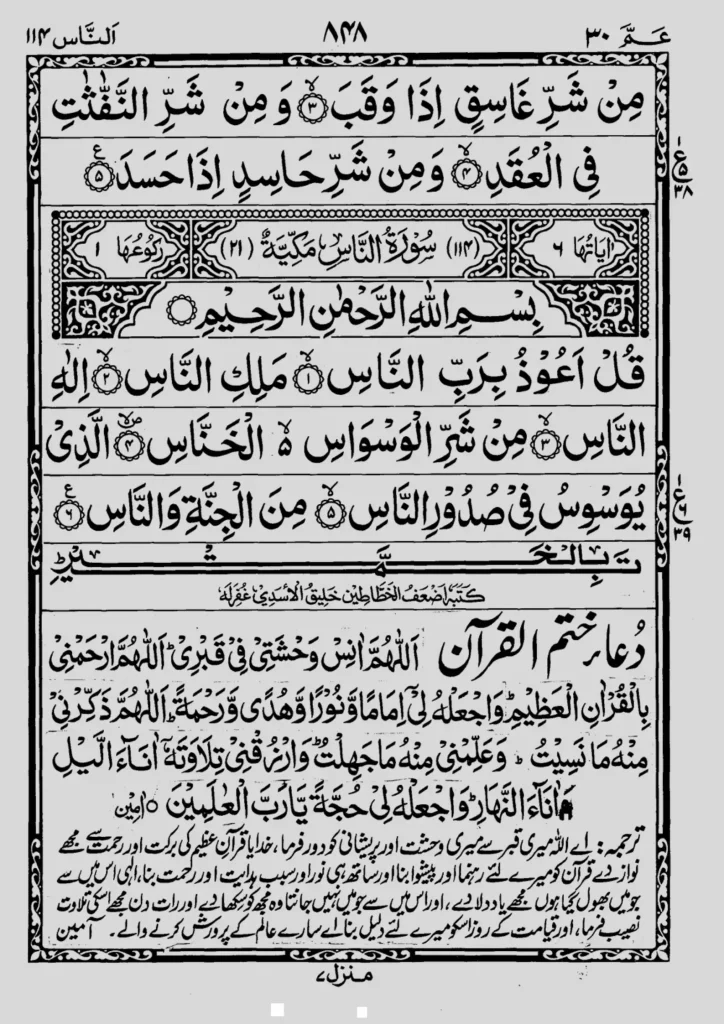 عَمَّ ٣٠
٨٤٨
اَلنَّاس ١١٤
مِنْ شَرِّ غَاسِقٍ اِذَا وَقَبَ ۙ﴿۳﴾ وَمِنْ شَرِّ النَّفّٰثٰتِ
فِی الْعُقَدِ ۙ﴿۴﴾ وَمِنْ شَرِّ حَاسِدٍ اِذَا حَسَدَ ﴿۵﴾ ع
ع ۵ ۳۸
اٰیَاتُهَا ٦ (١١٤) سُوْرَةُ النَّاسِ مَكِّیَّةٌ (٢١) رُكُوْعُهَا ١
بِسْمِ اللّٰهِ الرَّحْمٰنِ الرَّحِیْمِ
قُلْ اَعُوْذُ بِرَبِّ النَّاسِ ۙ﴿۱﴾ مَلِكِ النَّاسِ ۙ﴿۲﴾ اِلٰهِ
النَّاسِ ۙ﴿۳﴾ مِنْ شَرِّ الْوَسْوَاسِ ۙ۬ الْخَنَّاسِ ﴿۴﴾ الَّذِیْ
یُوَسْوِسُ فِیْ صُدُوْرِ النَّاسِ ۙ﴿۵﴾ مِنَ الْجِنَّةِ وَالنَّاسِ ﴿۶﴾ ع
ع ٦ ۳۹
تَمَّتْ بِالْخَیْرِ
كَتَبَهٗ اَضْعَفُ الْخَطَّاطِیْن خَلِیْقُ الْاَسْدِیْ غُفِرَلَهٗ
دُعاءِ ختم القرآن اَللّٰهُمَّ اٰنِسْ وَحْشَتِیْ فِیْ قَبْرِیْ ؕ اَللّٰهُمَّ ارْحَمْنِیْ
بِالْقُرْاٰنِ الْعَظِیْمِ ؕ وَاجْعَلْهُ لِیْ اِمَامًا وَّنُوْرًا وَّهُدًی وَّرَحْمَةً ؕ اَللّٰهُمَّ ذَكِّرْنِیْ
مِنْهُ مَا نَسِیْتُ ؕ وَعَلِّمْنِیْ مِنْهُ مَا جَهِلْتُ ؕ وَارْزُقْنِیْ تِلَاوَتَهٗ اٰنَآءَ الَّیْلِ
وَاٰنَآءَ النَّهَارِ ؕ وَاجْعَلْهُ لِیْ حُجَّةً یَّا رَبَّ الْعٰلَمِیْنَ ٥ اٰمِیْن
ترجمہ: اے اللہ میری قبر سے میری وحشت اور پریشانی کو دور فرما، خدایا قرآن عظیم کی برکت اور رحمت سے مجھے
نواز دے قرآن کو میرے لئے رہنما اور پیشوا بنا اور ساتھ ہی نور اور سبب ہدایت اور رحمت بنا، الہی اس میں سے
جو میں بھول گیا ہوں مجھے یاد دلا دے، اور اس میں سے جو میں نہیں جانتا وہ مجھ کو سکھا دے اور رات دن مجھے اسکی تلاوت
نصیب فرما، اور قیامت کے روز اسکو میرے لئے دلیل بنا اے سارے عالم کے پرورش کرنے والے۔ آمین
منزل ۷